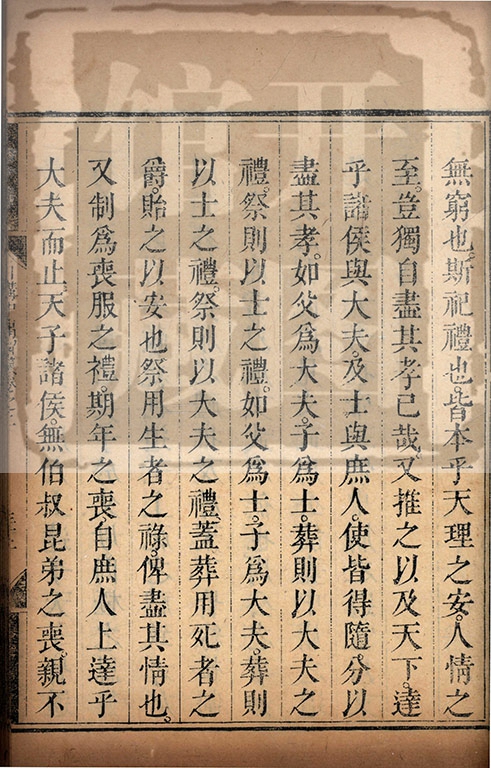 無窮也。斯祀禮也。皆本乎天理之安。人情之
至。豈獨自盡其孝已哉。又推之以及天下。達
乎諸侯與大夫。及士與庶人。使皆得隨分以
盡其孝。如父爲大夫。子爲士。葬則以大夫之
禮。祭則以士之禮。如父爲士。子爲大夫。葬則
以士之禮。祭則以大夫之禮。蓋葬用死者之
爵。貽之以安也。祭用生者之祿。俾盡其情也。
又制爲喪服之禮。期年之喪自庶人上達乎
大夫而止。天子諸侯。無伯叔昆弟之喪。親不